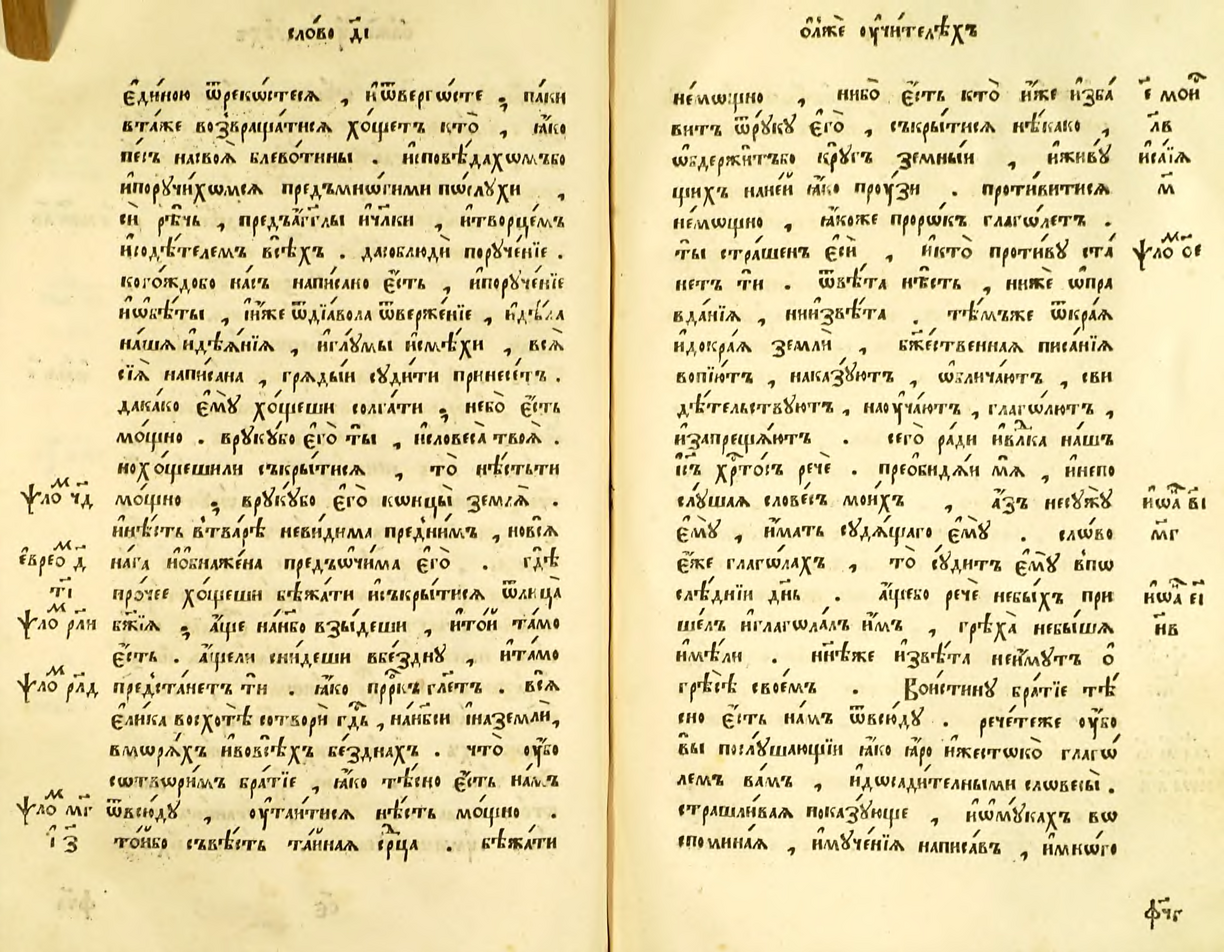 сло́во д҃і
є҆ди́ною ѿреко́стесѧ , и҆ѿверго́сте ; па́ки
вта́же возвраща́тисѧ хо́щетъ кто̀ , ꙗ҆́ко
пе́съ насвоѧ̀ блево́тины . и҆сповѣ́дахѡмъбо
и҆поручи́хѡмсѧ предъмнѡ́гими пѡ́слꙋхи ,
сѝ рѣ́чь , предъа҆́гг҃лы и҆чл҃ки , и҆творце́мъ
и҆содѣ́телемъ всѣ́хъ . дасоблюдѝ порꙋче́нїе .
когѡ́ждобо на́съ напи́сано є҆́сть , и҆порꙋче́нїе
и҆ѡбѣ́ты , и҆́же ѿдїа́вола ѿверже́нїе , и҆дѣ́ла
на́шѧ и҆дѣѧ́нїѧ , и҆глꙋмы̀ и҆смѣ́хи , всѧ̀
сїѧ̀ напи́сана , грѧды́и сꙋди́ти принесе́тъ .
дакако є҆мꙋ̀ хо́щеши солга́ти ; небо̀ є҆́сть
мо́щно . врꙋкꙋ́бо є҆гѡ̀ ты̀ , и҆словеса̀ твоѧ̀ .
нохо́щешили съкры́тисѧ , то̀ нѣ́стьти
ѱло ч҃д мо́щно ; врꙋкꙋ́бо є҆гѡ̀ кѡнцы̀ землѧ̀ .
и҆нѣ́сть в̾тва́рѣ неви́дима пред̾ни́мъ , новсѧ̀
є҆врео д҃ нага и҆ѡбнаже́на предъѡчи́ма є҆гѡ̀ . гдѣ̀
г҃і про́чее хо́щеши бѣжа́ти и҆съкры́тисѧ ѿлица̀
ѱло рл҃и бж҃їѧ ; а҆́ще на́нбо взы́деши , и҆то́й та́мо
є҆́сть . а҆́щели сни́деши вбе́зднꙋ , и҆та́мо
ѱло рл҃д предста́нетъ тѝ . ꙗ҆́ко прⷪ҇ркъ гл҃етъ . всѧ̀
є҆ли́ка восхотѣ̀ сотворѝ гд҇ь , нан҃бси і҆наземлѝ,
вмѡрѧ́хъ и҆вовсѣ́хъ бе́зднахъ . что̀ ᲂу҆̀бо
сѡтвѡри́мъ бра́тїе , ꙗ҆́ко тѣ́сно є҆́сть на́мъ
ѱло м҃г ѿвсю́дꙋ , ᲂу҆таи́тисѧ нѣ́сть мо́щно .
і҃ з҃ то́ибо съвѣ́сть та́инаѧ ср҃ца . бѣжа́ти
ѡ҆лжѐ ᲂу҆чи́телѣхъ
не́мѡщно , нибо̀ є҆́сть кто̀ и҆́же и҆зба́ є҃ мои҆
витъ ѿрꙋкꙋ̀ є҆гѡ̀ , съкры́тисѧ нѣ́како , л҃в
ѡ҆держи́тъбо крꙋ́гъ земны́и , и҆живꙋ́ и҆са́їѧ
щихъ нане́й ꙗ҆́ко прꙋ́зи . проти́витисѧ м҃
не́мѡщно , ꙗ҆́коже проро́къ глаго́летъ .
ты̀ стра́шенъ є҆сѝ , и҆кто̀ проти́вꙋ ста́ ѱло о҃є
нетъ тѝ . ѿвѣ́та нѣ́сть , ни́же ѡ҆пра
вда́нїѧ , ниизвѣ́та . тѣ́мъже ѿкра́ѧ
и҆докра́ѧ землѝ , бж҃е́ственнаѧ писа́нїѧ
вопїю́тъ , наказꙋ́ютъ , ѡ҆блича́ютъ , сви
дѣ́тельствꙋютъ , наᲂуча́ютъ , глаго́лютъ ,
и҆запреща́ютъ . сего̀ ра́ди и҆влⷣка на́шъ
і҆с҃ъ хрⷭ҇то́съ речѐ . преѡби́дѧи мѧ̀ , и҆непо
слꙋ́шаѧ слове́съ мои́хъ , а҆́зъ несꙋжꙋ̀ и҆ѡа в҃і
є҆мꙋ̀ , и҆́мать сꙋдѧ́щаго є҆мꙋ̀ . сло́во м҃г
є҆́же глаго́лахъ , то̀ сꙋ́дитъ є҆мꙋ̀ впѡ
слѣ́днїи дн҃ь . а҆́щебо речѐ небы́хъ при и҆ѡа є҃і
ше́лъ и҆глаго́лалъ и҆̀мъ , грѣха̀ небы́шѧ к҃в
и҆мѣ́ли . нн҃ѣже и҆звѣ́та неи҆́мꙋтъ ѻ҆
грѣсѣ̀ свое́мъ . Вои́стинꙋ бра́тїе тѣ́
сно є҆́сть на́мъ ѿвсю́дꙋ . рече́теже ᲂу҆́бо
вы̀ послꙋ́шающїи ꙗ҆́ко ꙗ҆́ро и҆же́стѡко глаго́
лемъ ва́мъ , и҆дѡсади́тельными словесы̀ .
страшли́ваѧ показꙋ́юще , и҆ѡмꙋ́кахъ вѡ
спомина́ѧ , и҆мꙋче́нїѧ написа́въ , и҆мно́гѡ
ф҃чг